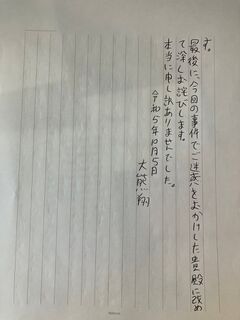 す。
最後に、今回の事件でご迷惑をおかけした貴殿に改め
て深くお詫びします。
本当に申し訳ありませんでした。
令和5年10月5日
大熊翔